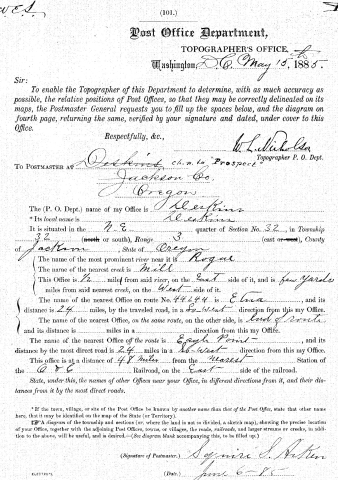 (101.)
Post Office Department,
TOPOGRAPHER'S OFFICE,
Washington, D.C. May 15, 1885.
Sir:
To enable the Topographer of this Department to determine, with as much accuracy as
possible, the relative positions of Post Offices, so that they may be correctly delineated on its
maps, the Postmaster General requests you to fill up the spaces below, and the diagram on
fourth page, returning the same, verified by your signature and dated, under cover to this
Office.
Respectfully, &c.,
W. L. Nicholson
Topographer P. O. Dept.
TO POSTMASTER AT Deskins ch. n. to "Prospect"
Jackson Co.
Oregon
The (P. O. Dep't.) name of my Office is Deskins
* Its local name is Deskins
It is situated in the N.E. quarter of Section No. 32, in Township
32 (north or south), Range 3 (east or west), County
of Jackson, State of Oregon
The name of the most prominent river near it is Rogue
The name of the nearest creek is Mill
This Office is 1/2 mile from said river, on the East side of it, and is few yards
miles from said nearest creek, on the West side of it.
The name of the nearest office on route No. 44244 is Etna, and its
distance is 24 miles, by the traveled road, in a So West direction from this my Office.
The name of the nearest Office, on the same route, on the other side, is End of route
and its distance is miles in a direction from this my Office.
The name of the nearest Office off the route is Eagle Point, and its
distance by the most direct road is 24 miles in a So West direction from this my Office.
This office is at a distance of 48 mls from the nearest Station of
the O & C Railroad, on the East side of the railroad.
State, under this, the names of other Offices near your Office, in different directions from it, and their dis-
tances from it by the most direct roads.
* If the town, village, or site of the Post Office be known by another name than that of the Post Office, state that other name
here, that it may be identified on the map of the State (or Territory).
A diagram of the township and sections (or, where the land is not so divided, a sketch map), showing the precise location
of your Office, together with the adjoining Post Offices, towns, or villages, the roads, railroads, and larger streams or creeks, in addi-
tion to the above, will be useful, and is desired.—(See diagram blank accompanying this, to be filled up.)
(Signature of Postmaster.) Squire S. Aiken
(Date.) June 6 - 85